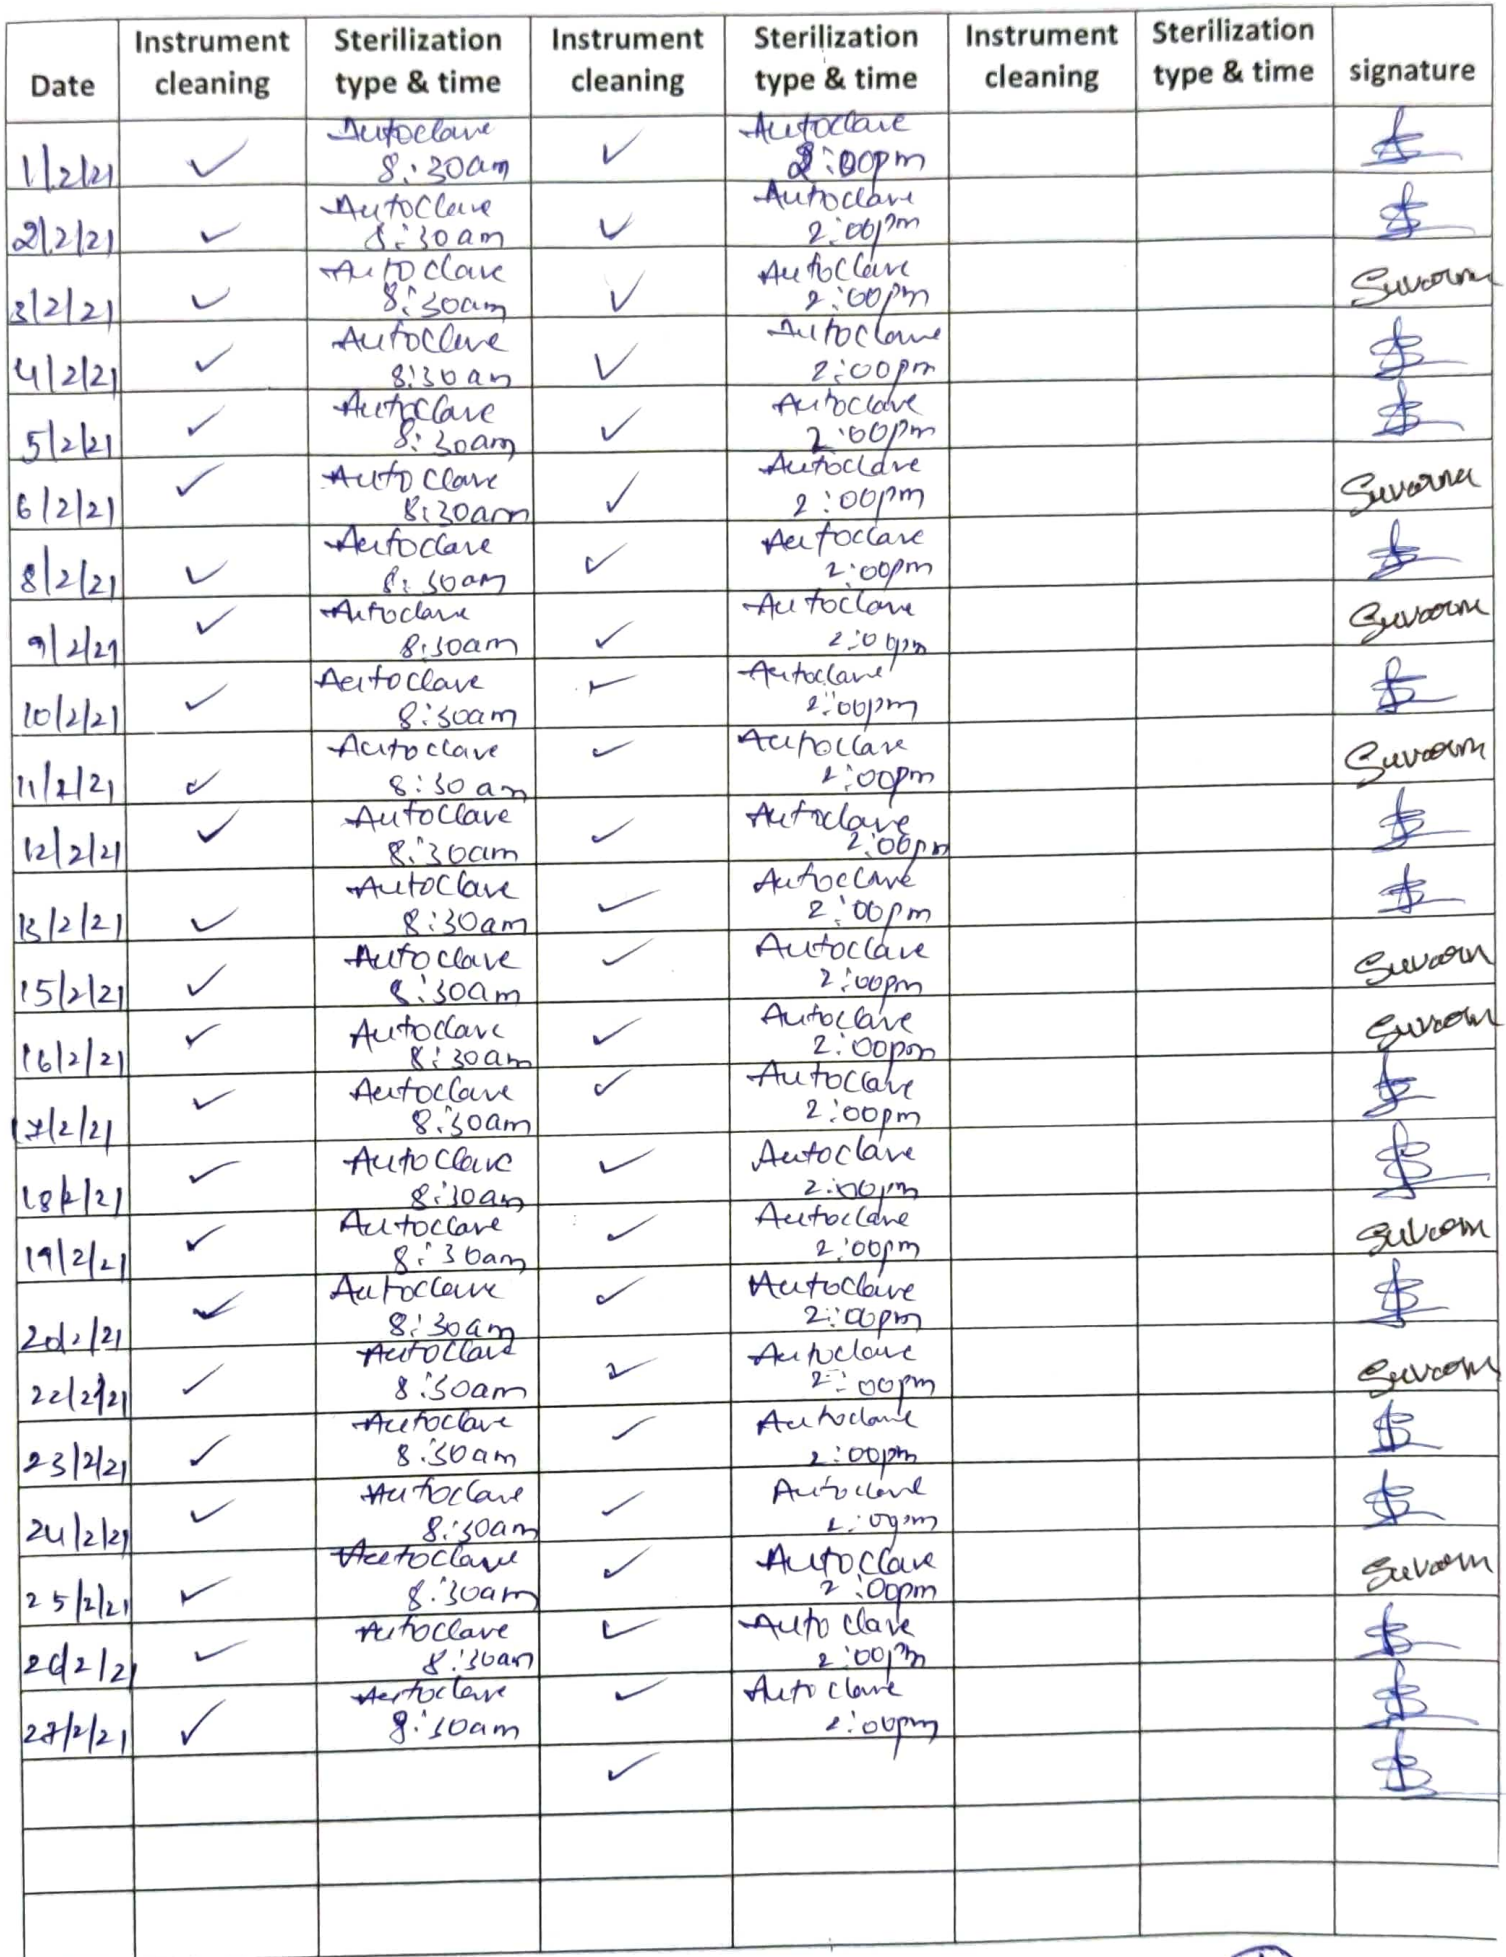 Date Instrument cleaning Sterilization type & time Instrument cleaning Sterilization type & time Instrument cleaning Sterilization type & time signature
1/2/21 ✓ Autoclave 8:30am ✓ Autoclave 2:00pm
2/2/21 ✓ Autoclave 8:30am ✓ Autoclave 2:00pm
3/2/21 ✓ Autoclave 8:30am ✓ Autoclave 2:00pm Suvarna
4/2/21 ✓ Autoclave 8:30am ✓ Autoclave 2:00pm
5/2/21 ✓ Autoclave 8:30am ✓ Autoclave 2:00pm
6/2/21 ✓ Autoclave 8:30am ✓ Autoclave 2:00pm Suvarna
8/2/21 ✓ Autoclave 8:30am ✓ Autoclave 2:00pm
9/2/21 ✓ Autoclave 8:30am ✓ Autoclave 2:00pm Suvarna
10/2/21 ✓ Autoclave 8:30am ✓ Autoclave 2:00pm
11/2/21 ✓ Autoclave 8:30am ✓ Autoclave 2:00pm Suvarna
12/2/21 ✓ Autoclave 8:30am ✓ Autoclave 2:00pm
13/2/21 ✓ Autoclave 8:30am ✓ Autoclave 2:00pm
15/2/21 ✓ Autoclave 8:30am ✓ Autoclave 2:00pm Suvarn
16/2/21 ✓ Autoclave 8:30am ✓ Autoclave 2:00pm Suvarn
17/2/21 ✓ Autoclave 8:30am ✓ Autoclave 2:00pm
18/2/21 ✓ Autoclave 8:30am ✓ Autoclave 2:00pm
19/2/21 ✓ Autoclave 8:30am ✓ Autoclave 2:00pm Suvarn
20/2/21 ✓ Autoclave 8:30am ✓ Autoclave 2:00pm
22/2/21 ✓ Autoclave 8:30am ✓ Autoclave 2:00pm Suvarn
23/2/21 ✓ Autoclave 8:30am ✓ Autoclave 2:00pm
24/2/21 ✓ Autoclave 8:30am ✓ Autoclave 2:00pm
25/2/21 ✓ Autoclave 8:30am ✓ Autoclave 2:00pm Suvarn
26/2/21 ✓ Autoclave 8:30am ✓ Autoclave 2:00pm
27/2/21 ✓ Autoclave 8:30am ✓ Autoclave 2:00pm
✓